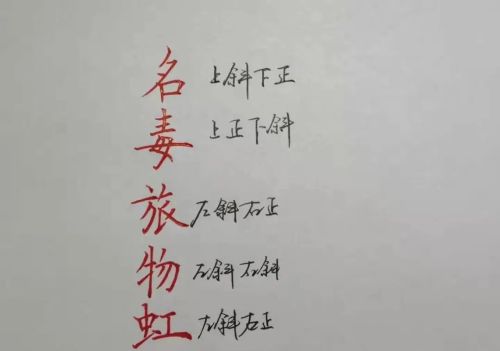 名 上斜下正
毒 上正下斜
旅 左斜右正
物 左斜右斜
虹 左斜右正